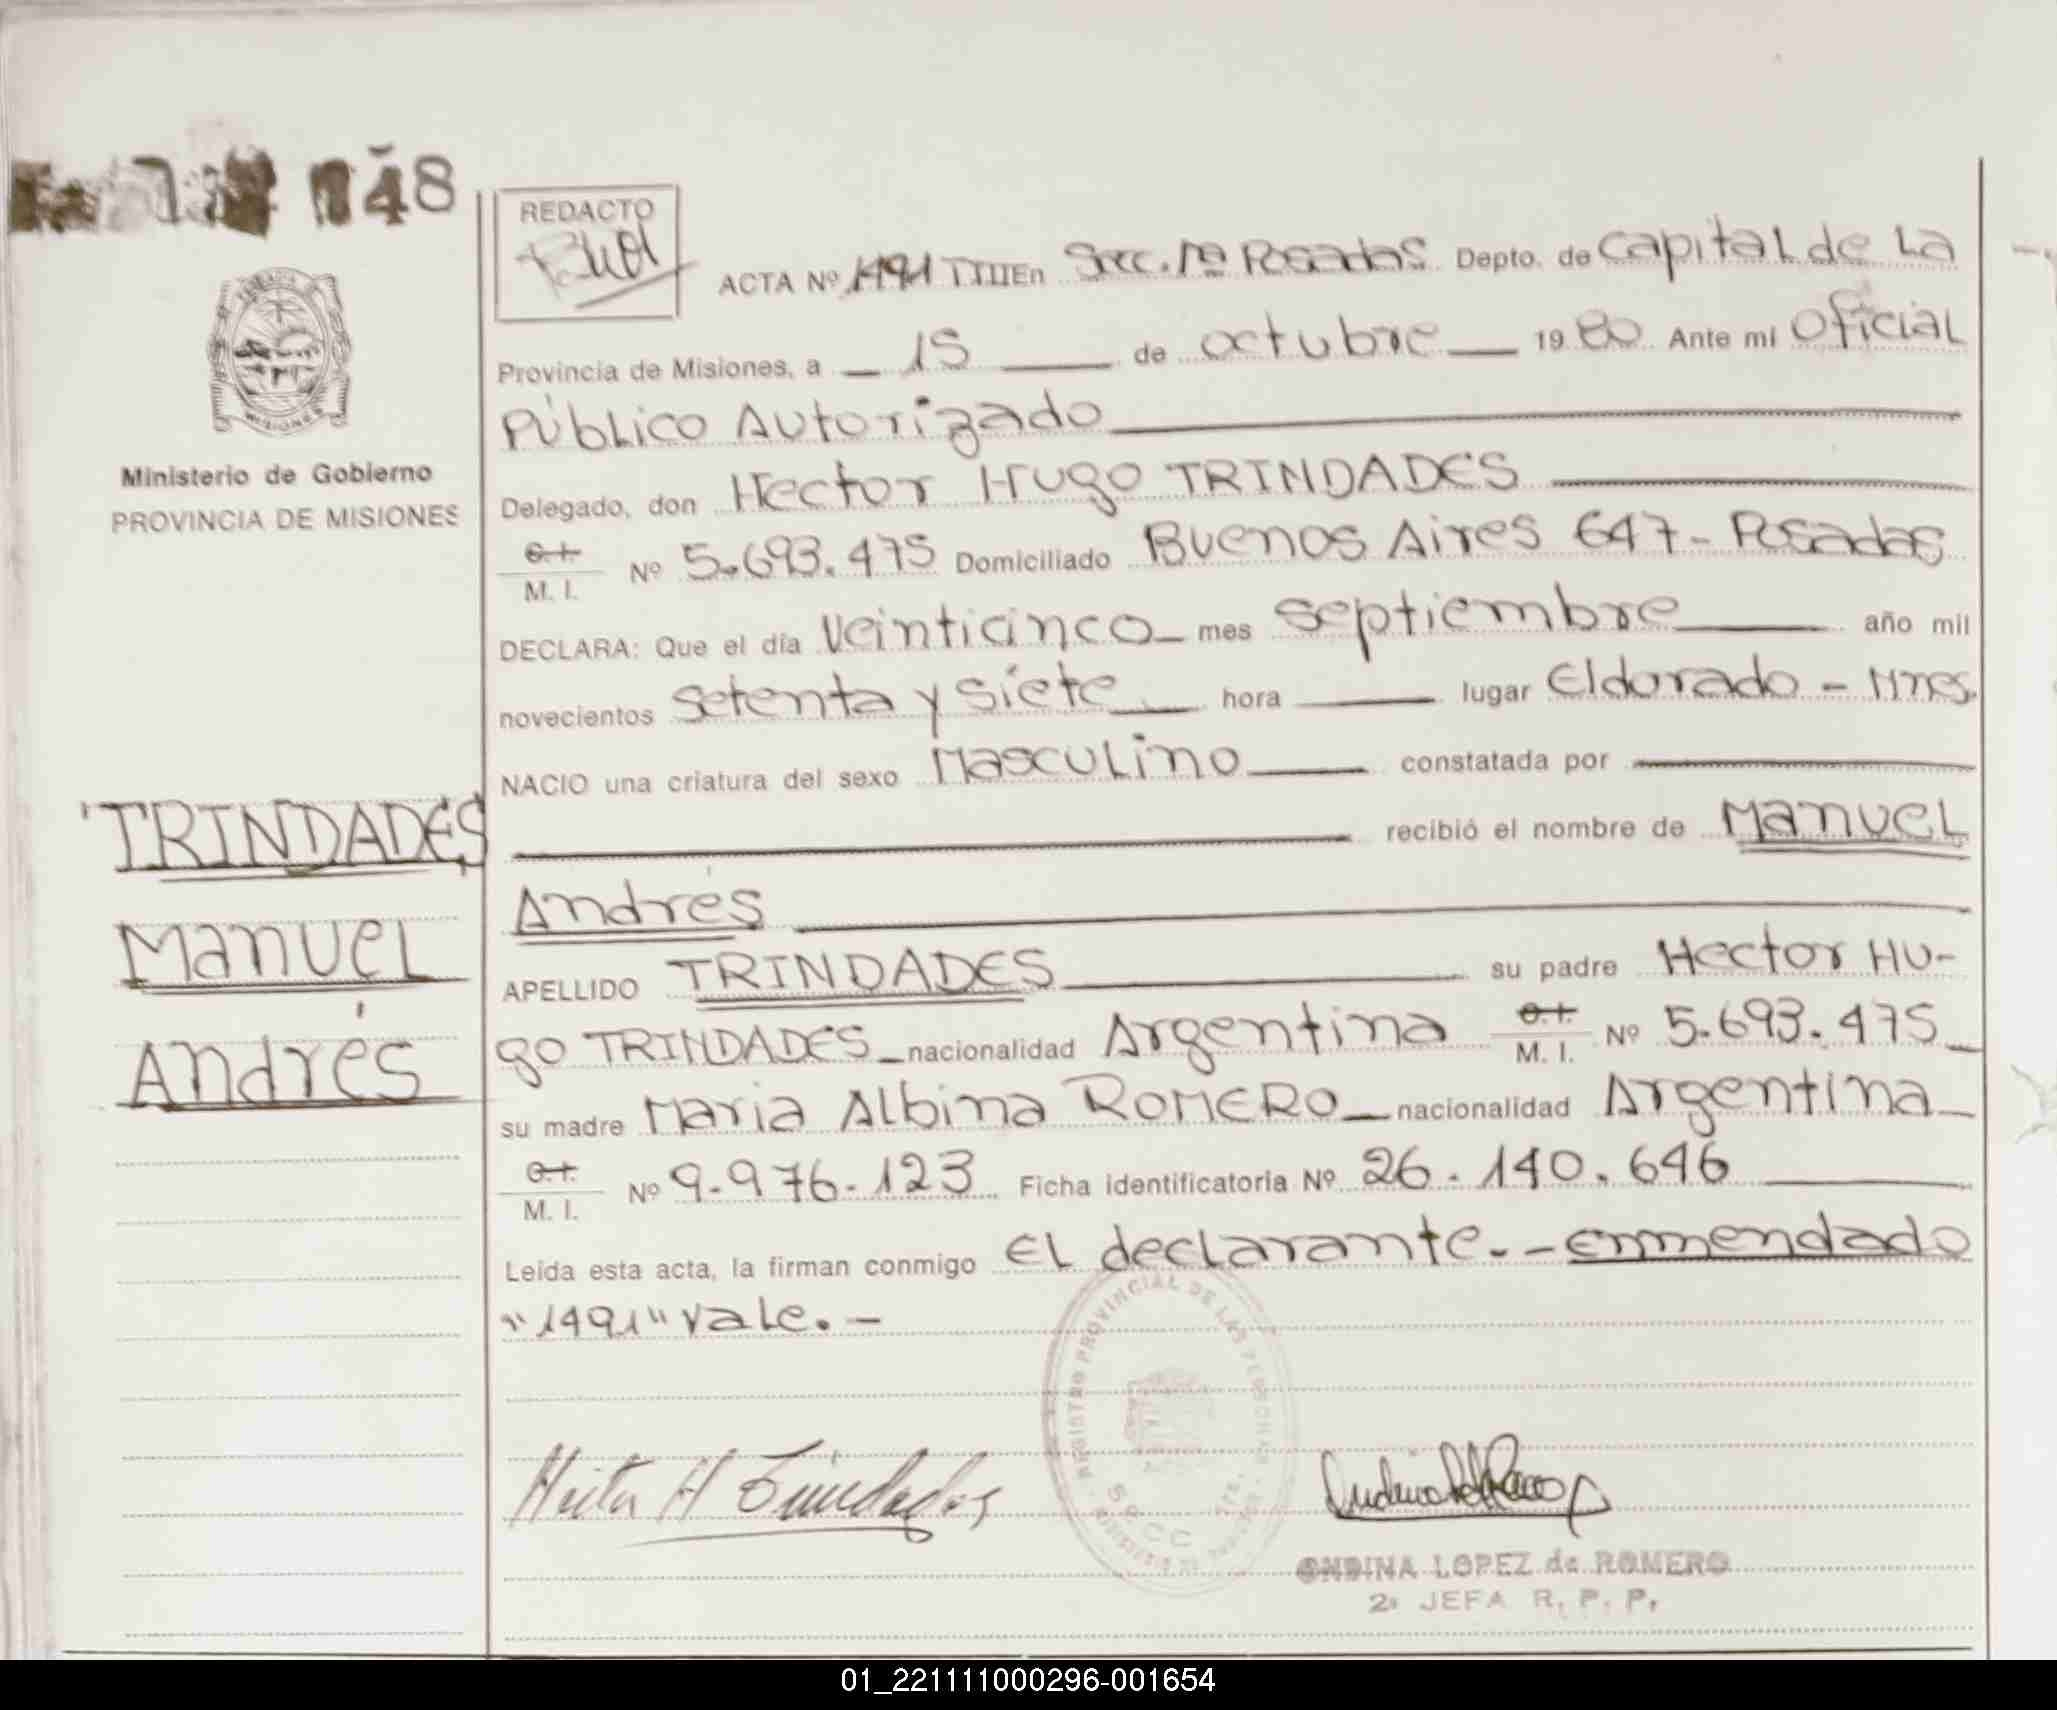 148
REDACTO
ACTA Nº 1491 TIII En Secc. 1ª Posadas Depto. de Capital de La
Provincia de Misiones, a 15 de octubre 1980 Ante mi Oficial
Público Autorizado
Delegado, don Hector Hugo TRINDADES
C.I.
M. I. Nº 5.693.475 Domiciliado Buenos Aires 647 - Posadas
DECLARA: Que el día Veinticinco mes septiembre año mil
novecientos setenta y siete hora lugar Eldorado - Mnes.
NACIO una criatura del sexo Masculino constatada por
recibió el nombre de Manuel
Andrés
APELLIDO TRINDADES su padre Hector Hu-
go TRINDADES nacionalidad Argentina C.I. M. I. Nº 5.693.475
su madre Maria Albina ROMERO nacionalidad Argentina
C.I.
M. I. Nº 9.976.123 Ficha identificatoria Nº 26.140.646
Leída esta acta, la firman conmigo EL declarante. - enmendado
"1491" vale. -
Ministerio de Gobierno
PROVINCIA DE MISIONES
TRINDADES
Manuel
Andrés
Hector H Trindades
REGISTRO PROVINCIAL DE LAS PERSONAS
ONDINA LOPEZ de ROMERO
2ª JEFA R. P. P.
01_221111000296-001654